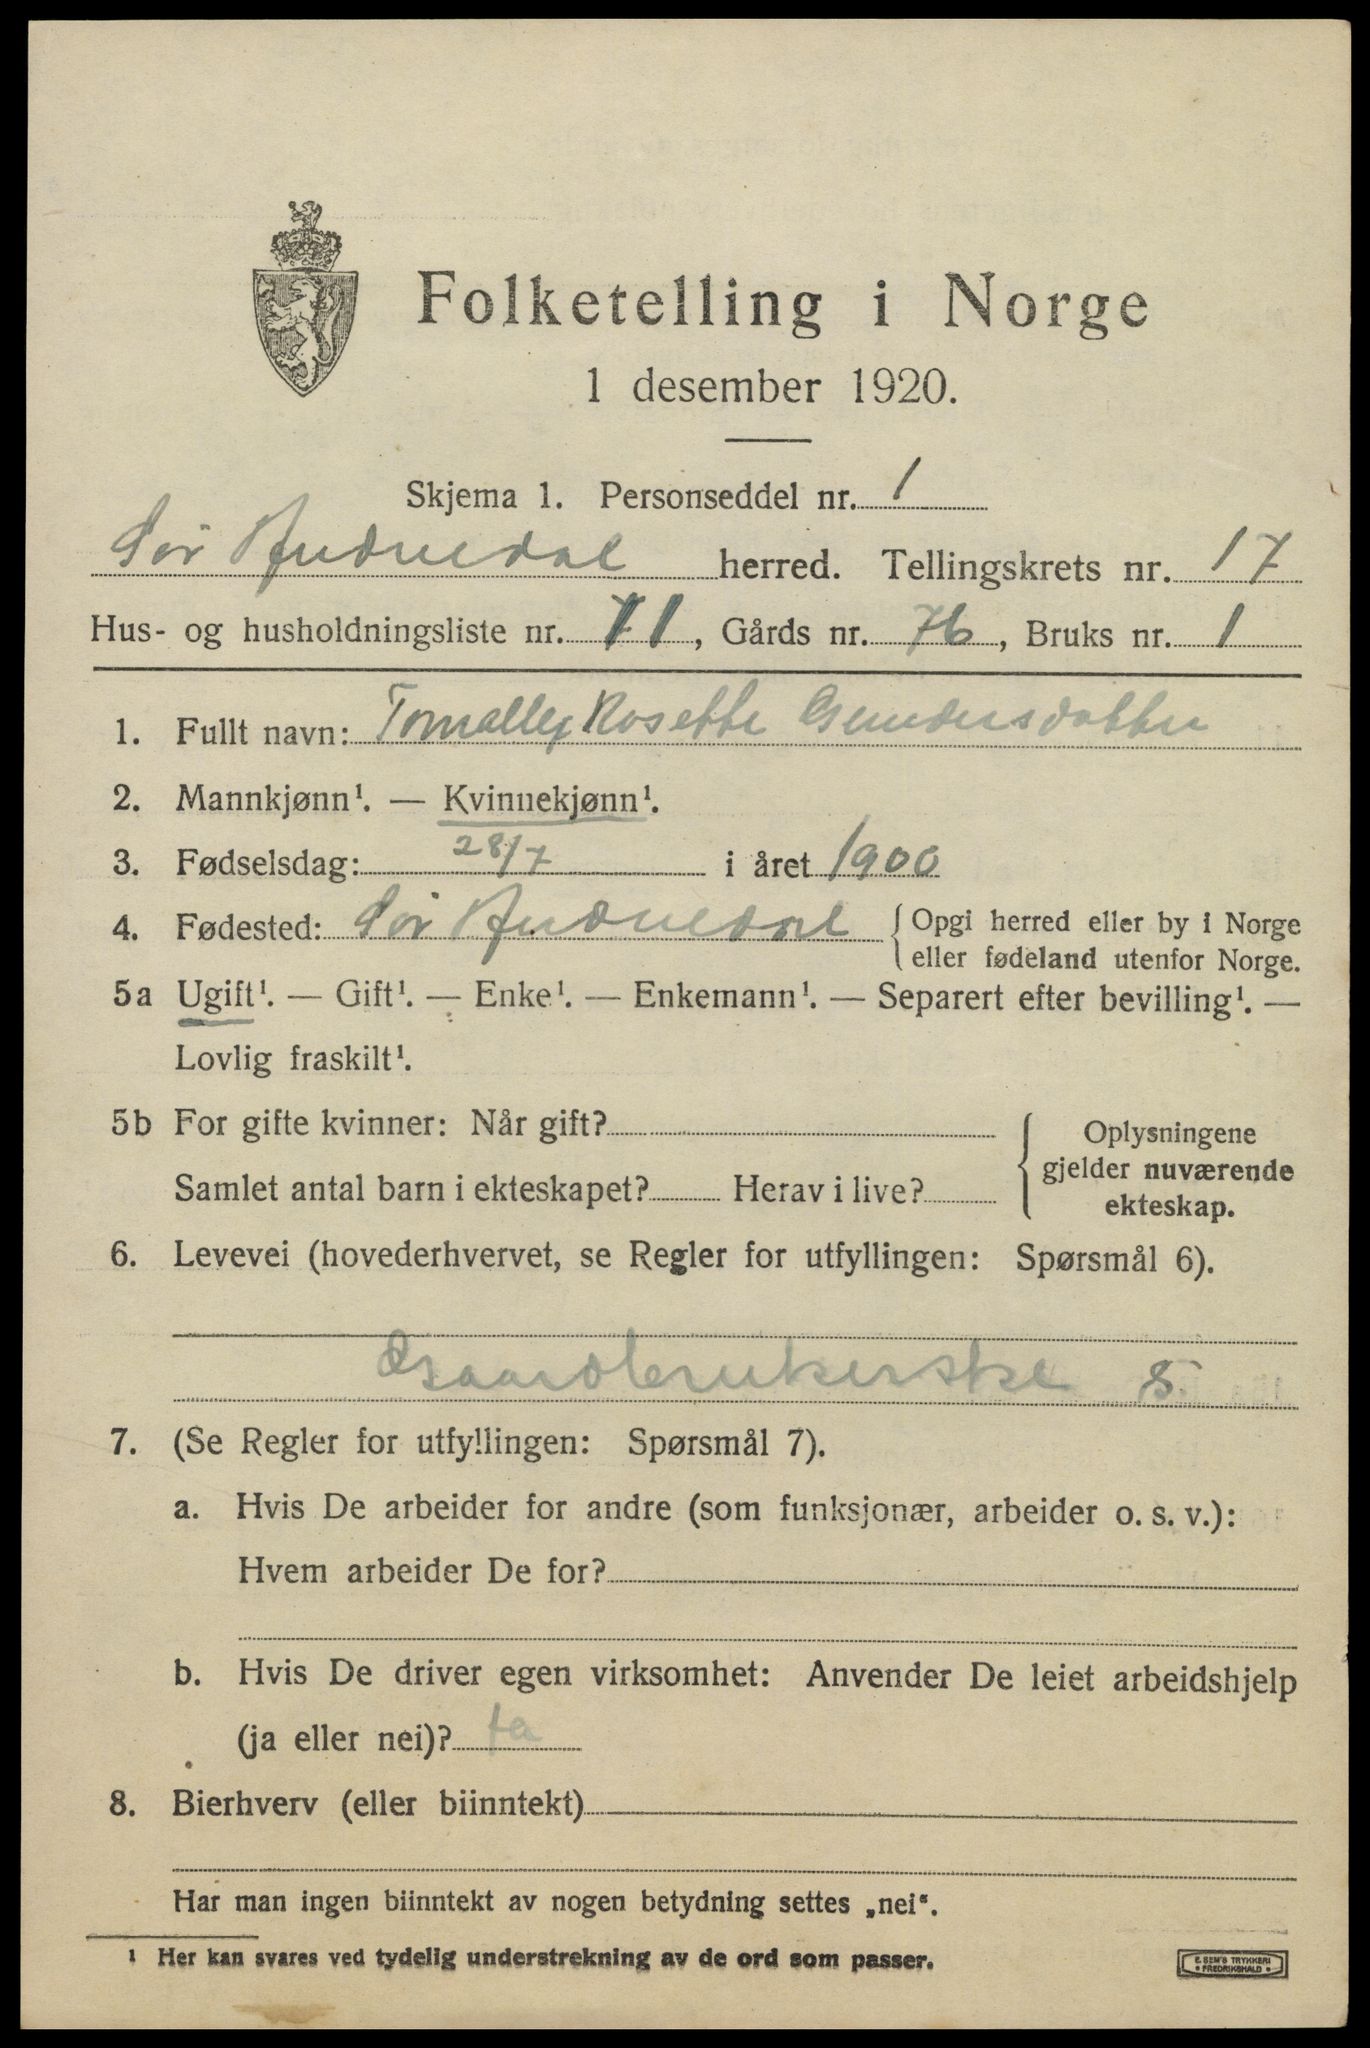 Folketelling i Norge
1 desember 1920.
Skjema 1. Personseddel nr. 1
Sør Audnedal herred. Tellingskrets nr. 17
Hus- og husholdningsliste nr. 71, Gårds nr. 76, Bruks nr. 1
1. Fullt navn: Rosette Gundersdatter
2. Mannkjønn¹. — Kvinnekjønn¹.
3. Fødselsdag: 28/7 i året 1900
4. Fødested: Sør Audnedal { Opgi herred eller by i Norge
eller fødeland utenfor Norge.
5a Ugift¹. — Gift¹. — Enke¹. — Enkemann¹. — Separert efter bevilling¹. —
Lovlig fraskilt¹.
5b For gifte kvinner: Når gift?
Samlet antal barn i ekteskapet? Herav i live?
{ Oplysningene
gjelder nuværende
ekteskap.
6. Levevei (hovederhvervet, se Regler for utfyllingen: Spørsmål 6).
Gaardbrukerske S
7. (Se Regler for utfyllingen: Spørsmål 7).
a. Hvis De arbeider for andre (som funksjonær, arbeider o. s. v.):
Hvem arbeider De for?
b. Hvis De driver egen virksomhet: Anvender De leiet arbeidshjelp
(ja eller nei)? ja
8. Bierhverv (eller biinntekt)
Har man ingen biinntekt av nogen betydning settes „nei“.
¹ Her kan svares ved tydelig understrekning av de ord som passer.
E. SEM'S TRYKKERI
• FREDRIKSHALD •